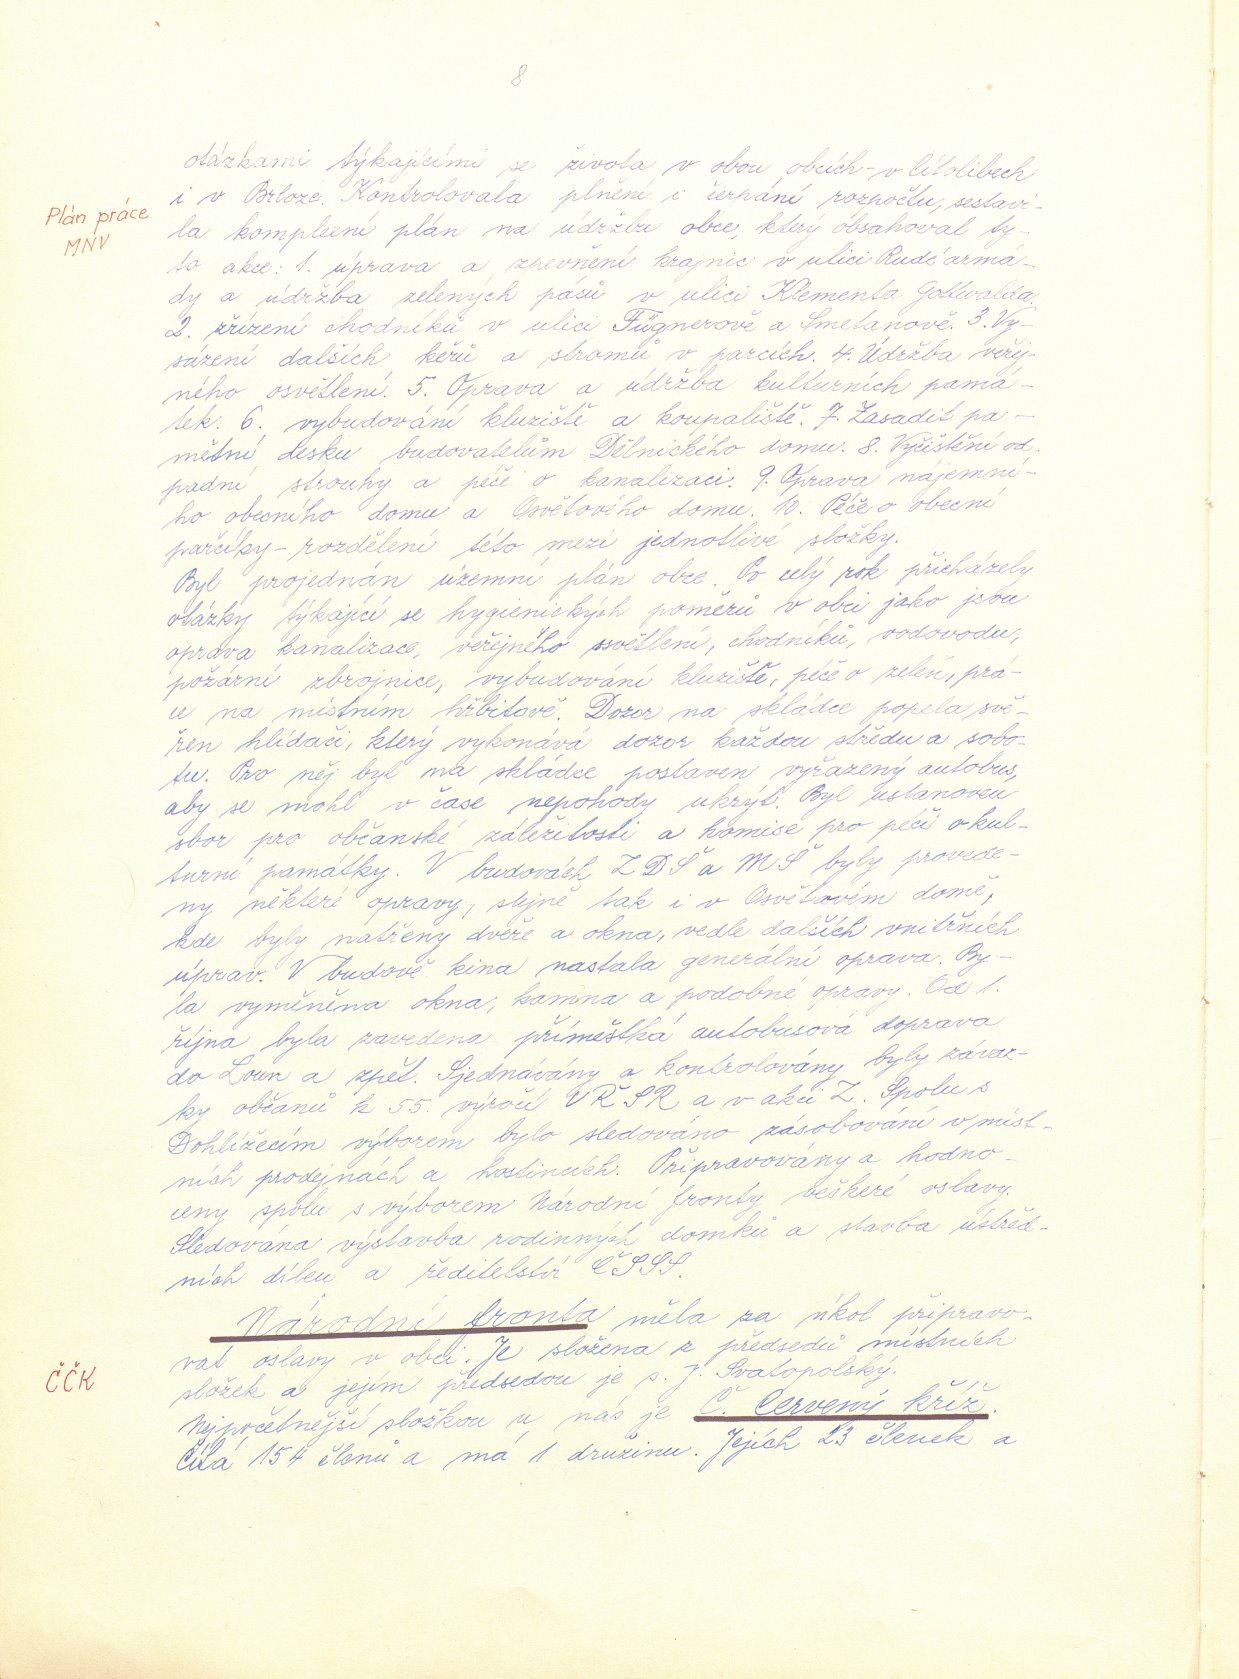 8
otázkami týkajícími se života v obou obcích - v Cítolibech
Plán práce
MNV
i v Brloze. Kontrolovala plnění i čerpání rozpočtu, sestavi-
la komplexní plán na údržbu obce, který obsahoval ty-
to akce: 1. úprava a zpevnění krajnic v ulici Rudé armá-
dy a údržba zelených pásů v ulici Klementa Gottwalda.
2. zřízení chodníků v ulici Fügnerově a Smetanově. 3. Vy-
sázení dalších keřů a stromů v parcích. 4. Údržba veřej-
ného osvětlení. 5. Oprava a údržba kulturních pamá-
tek. 6. vybudování kluziště a koupaliště. 7. Zasadit pa-
mětní desku budovatelům Dělnického domu. 8. Vyčištění od-
padní strouhy a péče o kanalizaci. 9. Oprava nájemní-
ho obecního domu a Osvětového domu. 10. Péče o obecní
pařčíky - rozdělení této mezi jednotlivé složky.
Byl projednán územní plán obce. Po celý rok přicházely
otázky týkající se hygienických poměrů v obci jako jsou
oprava kanalizace, veřejného osvětlení, chodníků, vodovodu,
požární zbrojnice, vybudování kluziště, péče o zeleň, prá-
ce na místním hřbitově. Dozor na skládce popela svě-
řen hlídači, který vykonává dozor každou středu a sobo-
tu. Pro něj byl na skládce postaven vyřazený autobus,
aby se mohl v čase nepohody ukrýt. Byl ustanoven
sbor pro občanské záležitosti a komise pro péči o kul-
turní památky. V budovách ZDŠ a MŠ byly provede-
ny některé opravy, stejně tak i v Osvětovém domě,
kde byly natřeny dveře a okna, vedle dalších vnitřních
úprav. V budově kina nastala generální oprava. By-
la vyměněna okna, kamna a podobné opravy. Od 1.
října byla zavedena příměstká autobusová doprava
do Loun a zpět. Sjednávány a kontrolovány byly závaz-
ky občanů k 55. výročí VŘSR a v akci Z. Spolu s
Dohlížecím výborem bylo sledováno zásobování v míst-
ních prodejnách a hostincích. Připravovány a hodno-
ceny spolu s výborem Národní fronty veškeré oslavy.
Sledována výstavba rodinných domků a stavba ústřed-
ních dílen a ředitelství ČSSS.
Národní fronta měla za úkol připravo-
vat oslavy v obci. Je složena z předsedů místních
ČČK
složek a jejím předsedou je s. J. Svatopolský.
Nejpočetnější složkou u nás je Č. Červený kříž.
Čítá 154 členů a má 1 družinu. Jejích 23 členek a